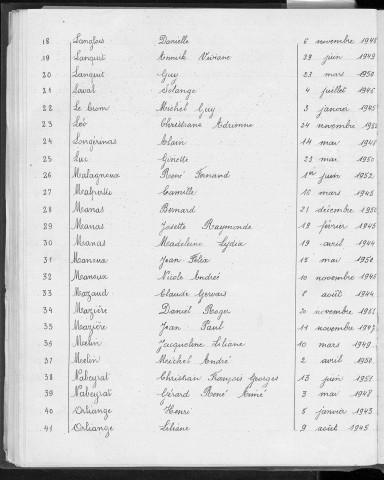 18 Langlois Danielle 6 novembre 1948
19 Languit Annick Viviane 29 juin 1949
20 Languit Guy 23 mars 1950
21 Laval Solange 4 juillet 1945
22 Le Michel Guy 3 janvier 1945
23 Léo Christiane Adrienne 24 novembre
24 Longérinas Alain 14 mai 1948
25 Luc Ginette 23 mai 1950
26 Malagnoux René Fernand 1er juin 1952
27 Camille 10 mars 1945
28 Manas Bernard 21 décembre 1950
29 Manas Josette Raymonde 18 février 1945
30 Manas Madeleine Lydia 19 avril 1944
31 Manoux Jean Félix 15 mai 1950
32 Manoux Nicole Andrée 10 novembre 1946
33 Mazaud Claude Gervais août 1944
34 Mazière Daniel Roger 20 novembre 1951
35 Mazière Jean Paul 11 novembre 1947
36 Merlin Jacqueline Liliane 10 mars 1949
37 Merlin Michel André 2 avril 1950
38 Nabeyrat Christian François Georges 13 juin 1951
39 Nabeyrat Gérard René Aimé 3 mai 1948
40 Orliange Henri 5 janvier 1943
41 Orliange Liliane 9 août 1945